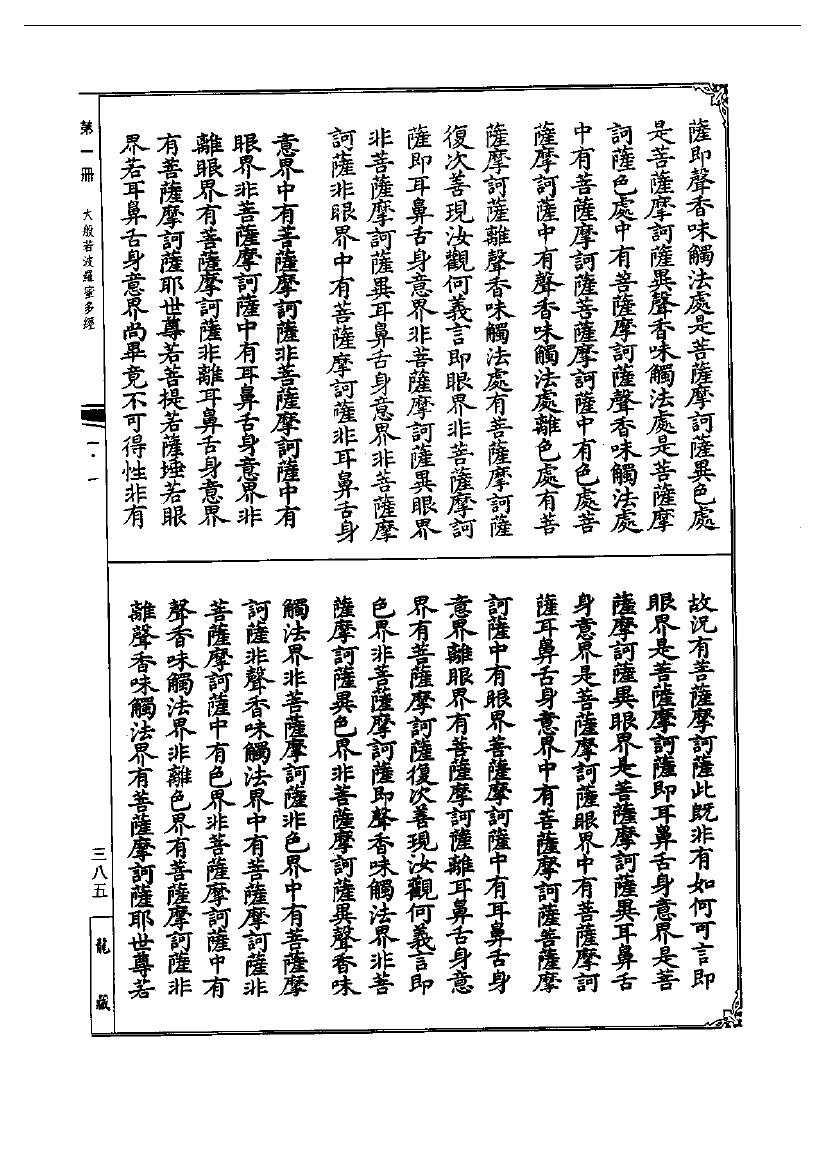 薩即聲香味觸法處是菩薩摩訶薩異色處
是菩薩摩訶薩異聲香味觸法處是菩薩摩
訶薩色處中有菩薩摩訶薩聲香味觸法處
中有菩薩摩訶薩菩薩摩訶薩中有色處菩
薩摩訶薩中有聲香味觸法處離色處有菩
薩摩訶薩離聲香味觸法處有菩薩摩訶薩
復次善現汝觀何義言即眼界非菩薩摩訶
薩即耳鼻舌身意界非菩薩摩訶薩異眼界
非菩薩摩訶薩異耳鼻舌身意界非菩薩摩
訶薩非眼界中有菩薩摩訶薩非耳鼻舌身
意界中有菩薩摩訶薩非菩薩摩訶薩中有
眼界非菩薩摩訶薩中有耳鼻舌身意界非
離眼界有菩薩摩訶薩非離耳鼻舌身意界
有菩薩摩訶薩耶世尊若菩提若薩埵若眼
界若耳鼻舌身意界尚畢竟不可得性非有
故況有菩薩摩訶薩此既非有如何可言即
眼界是菩薩摩訶薩即耳鼻舌身意界是菩
薩摩訶薩異眼界是菩薩摩訶薩異耳鼻舌
身意界是菩薩摩訶薩眼界中有菩薩摩訶
薩耳鼻舌身意界中有菩薩摩訶薩菩薩摩
訶薩中有眼界菩薩摩訶薩中有耳鼻舌身
意界離眼界有菩薩摩訶薩離耳鼻舌身意
界有菩薩摩訶薩復次善現汝觀何義言即
色界非菩薩摩訶薩即聲香味觸法界非菩
薩摩訶薩異色界非菩薩摩訶薩異聲香味
觸法界非菩薩摩訶薩非色界中有菩薩摩
訶薩非聲香味觸法界中有菩薩摩訶薩非
菩薩摩訶薩中有色界非菩薩摩訶薩中有
聲香味觸法界非離色界有菩薩摩訶薩非
離聲香味觸法界有菩薩摩訶薩耶世尊若
第一冊 大般若波羅蜜多經
一·一
三八五
龍藏